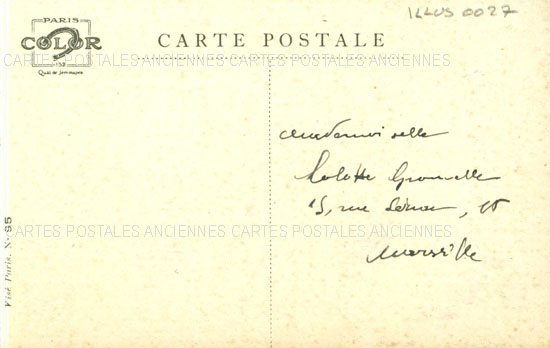 PARIS
COLOR
152
Quai de Jemmapes
ILLUS 0027
CARTE POSTALE
CARTES POSTALES ANCIENNES CARTES POSTALES ANCIENNES CARTES POSTALES ANCIENNES
Mademoiselle
15, rue
Marseille
CARTES POSTALES ANCIENNES CARTES POSTALES ANCIENNES CARTES POSTALES ANCIENNES
Visé Paris. N° 95